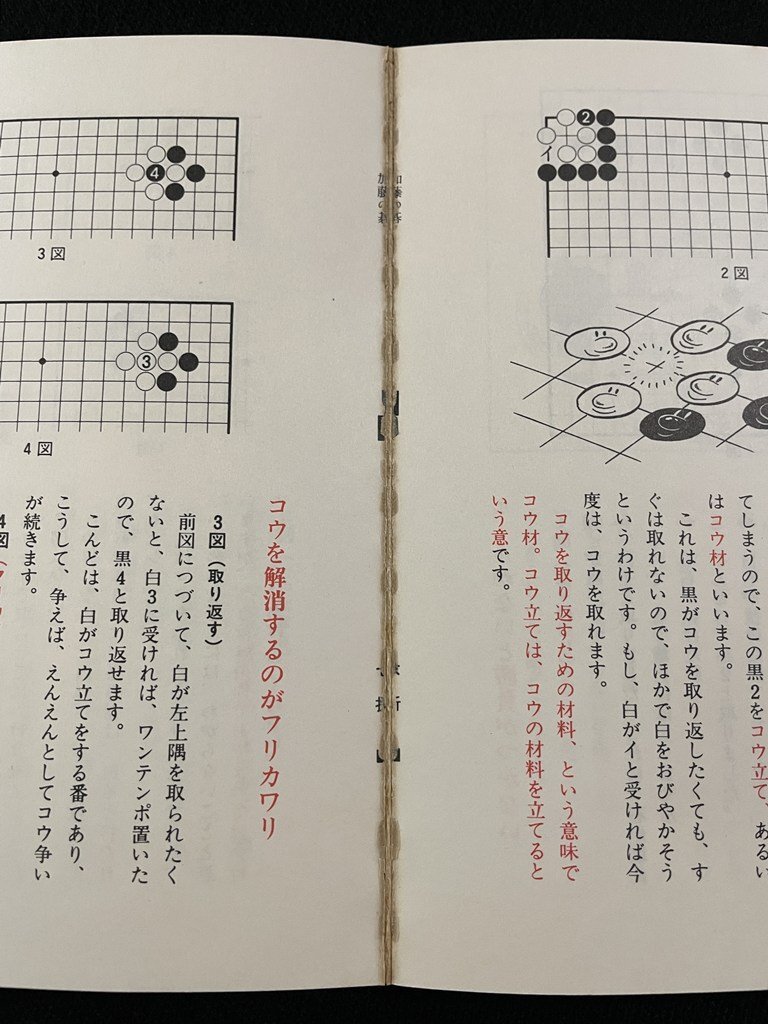 2
イ
2図
てしまうので、この黒2をコウ立て、あるい
はコウ材といいます。
これは、黒がコウを取り返したくても、す
ぐは取れないので、ほかで白をおびやかそう
というわけです。もし、白がイと受ければ今
度は、コウを取れます。
コウを取り返すための材料、という意味で
コウ材。コウ立ては、コウの材料を立てると
いう意です。
4
3図
3
4図
コウを解消するのがフリカワリ
3図（取り返す）
前図につづいて、白が左上隅を取られたく
ないと、白3に受ければ、ワンテンポ置いた
ので、黒4と取り返せます。
こんどは、白がコウ立てをする番であり、
こうして、争えば、えんえんとしてコウ争い
が続きます。
4図